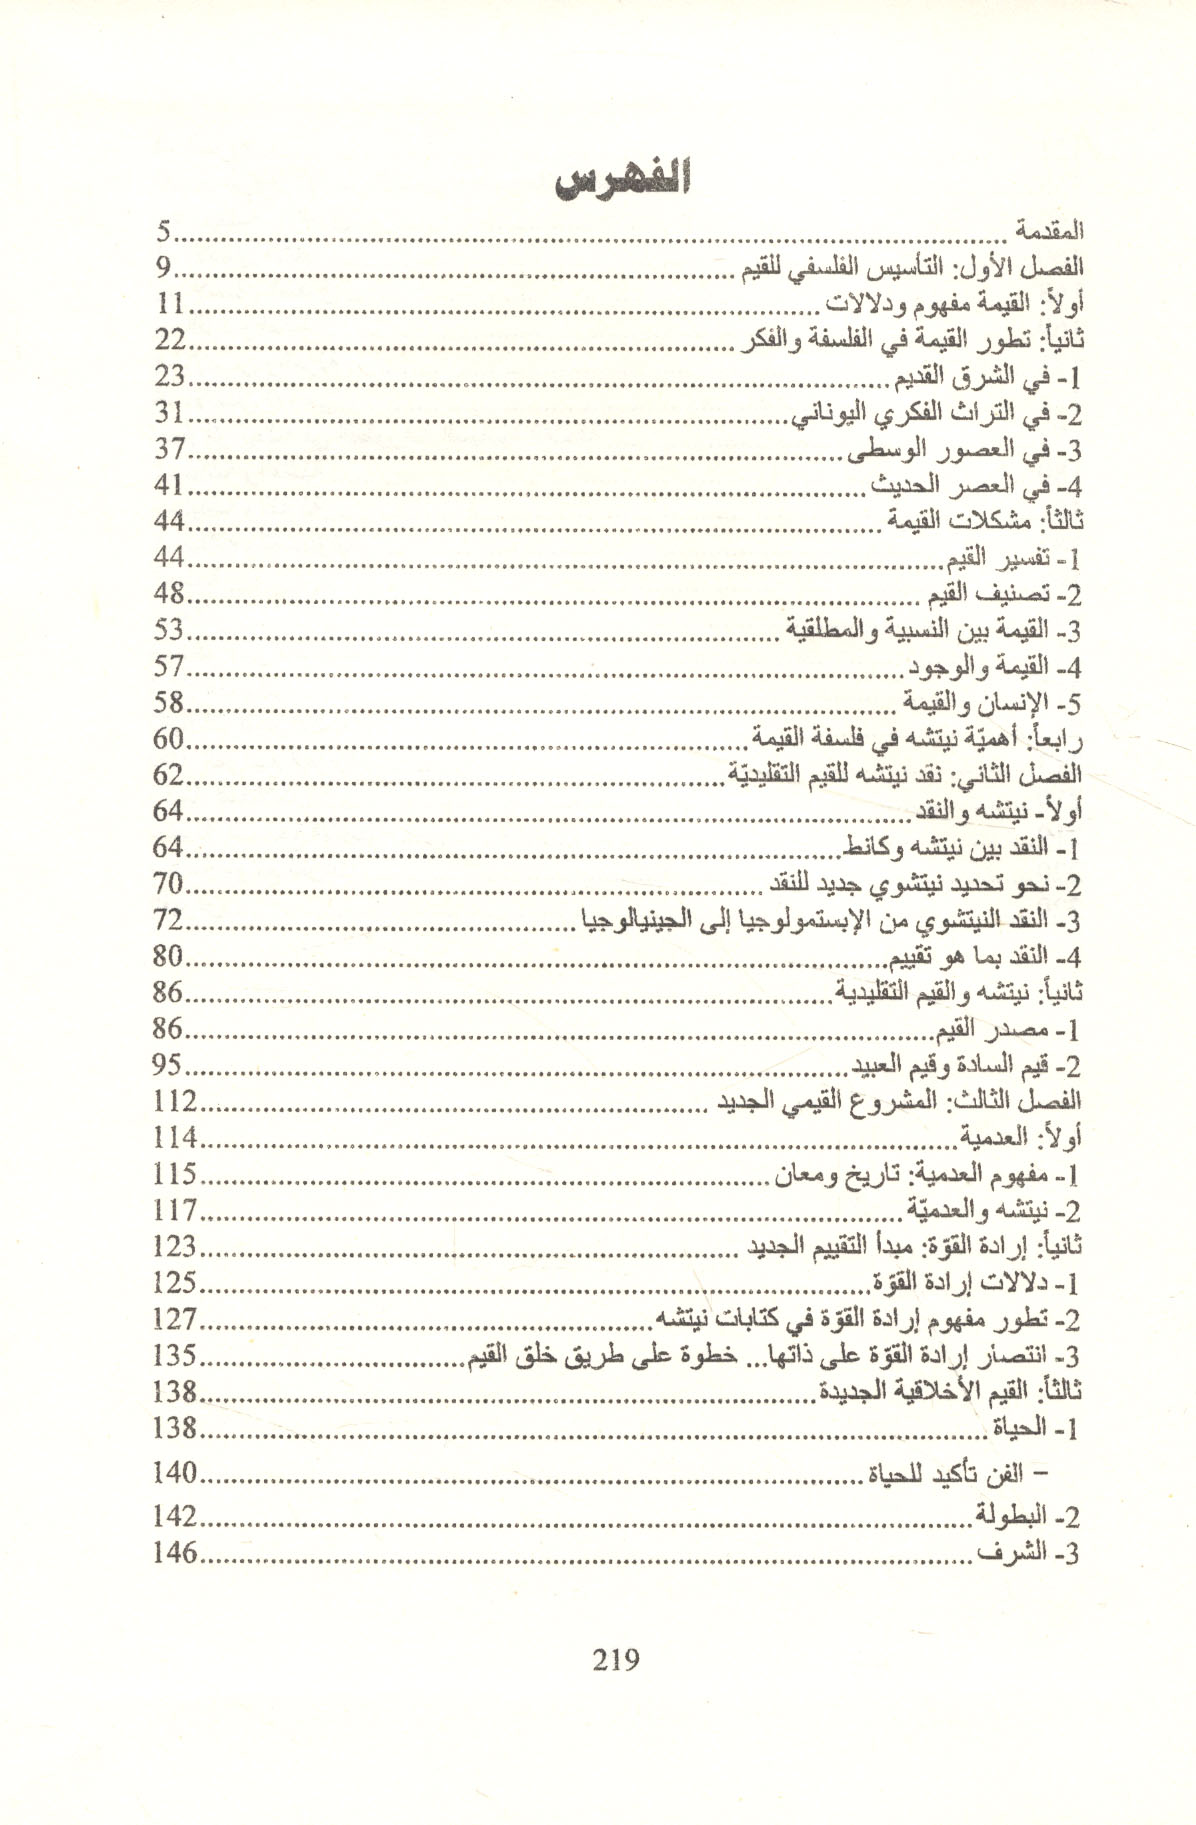 الفهرس
المقدمة ........................................ 5
الفصل الأول: التأسيس الفلسفي للقيم ........................................ 9
أولاً: القيمة مفهوم ودلالات ........................................ 11
ثانياً: تطور القيمة في الفلسفة والفكر ........................................ 22
1- في الشرق القديم ........................................ 23
2- في التراث الفكري اليوناني ........................................ 31
3- في العصور الوسطى ........................................ 37
4- في العصر الحديث ........................................ 41
ثالثاً: مشكلات القيمة ........................................ 44
1- تفسير القيم ........................................ 44
2- تصنيف القيم ........................................ 48
3- القيمة بين النسبية والمطلقية ........................................ 53
4- القيمة والوجود ........................................ 57
5- الإنسان والقيمة ........................................ 58
رابعاً: أهميّة نيتشه في فلسفة القيمة ........................................ 60
الفصل الثاني: نقد نيتشه للقيم التقليديّة ........................................ 62
أولاً- نيتشه والنقد ........................................ 64
1- النقد بين نيتشه وكانط ........................................ 64
2- نحو تحديد نيتشوي جديد للنقد ........................................ 70
3- النقد النيتشوي من الإبستمولوجيا إلى الجينيالوجيا ........................................ 72
4- النقد بما هو تقييم ........................................ 80
ثانياً: نيتشه والقيم التقليدية ........................................ 86
1- مصدر القيم ........................................ 86
2- قيم السادة وقيم العبيد ........................................ 95
الفصل الثالث: المشروع القيمي الجديد ........................................ 112
أولاً: العدمية ........................................ 114
1- مفهوم العدمية: تاريخ ومعان ........................................ 115
2- نيتشه والعدميّة ........................................ 117
ثانياً: إرادة القوّة: مبدأ التقييم الجديد ........................................ 123
1- دلالات إرادة القوّة ........................................ 125
2- تطور مفهوم إرادة القوّة في كتابات نيتشه ........................................ 127
3- انتصار إرادة القوّة على ذاتها... خطوة على طريق خلق القيم ........................................ 135
ثالثاً: القيم الأخلاقية الجديدة ........................................ 138
1- الحياة ........................................ 138
– الفن تأكيد للحياة ........................................ 140
2- البطولة ........................................ 142
3- الشرف ........................................ 146
219